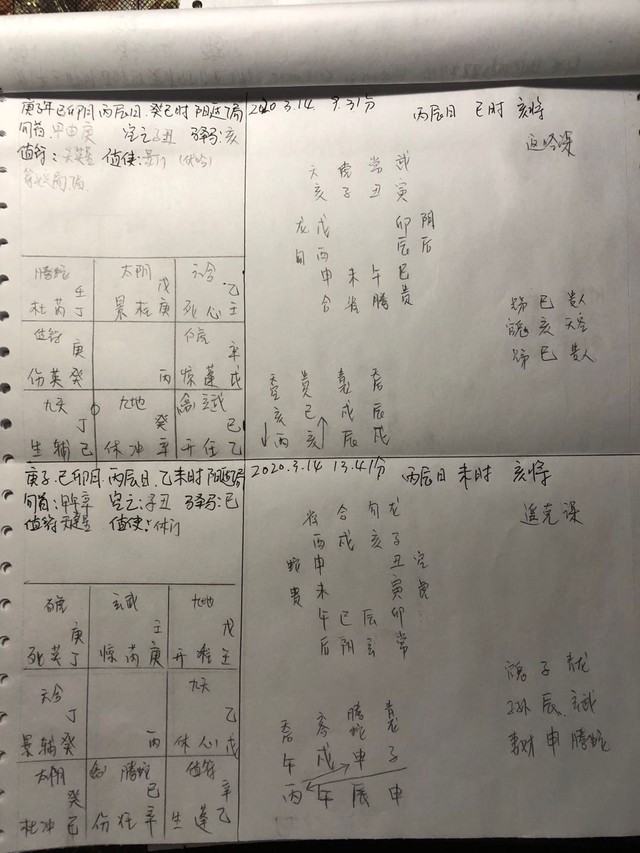 庚子年 己卯月 丙辰日 癸巳时 阳遁7局
旬首:甲申庚 空亡:子丑 驿马:亥
值符:天英星 值使:景门 (伏吟)
腾蛇 太阴 六合
壬 戊 乙
杜芮丁 景柱庚 死心壬
值符 白虎
庚 辛
伤英癸 丙 惊蓬戊
九天 九地 玄武
丁 癸 己
生辅己 休冲辛 开任乙
2020.3.14 9.31分 丙辰日 巳时 亥将
返吟课
天 虎 常 武
亥 子 丑 寅
龙 戌 卯 阴
酉 辰 后
申 未 午 巳
合 腾 贵
巳 贵人
亥 天空
巳 贵人
空 贵
亥 巳 戌 辰
丙 亥 辰 戌
庚子 己卯月 丙辰日 乙未时 阳遁7局
旬首:甲午辛 空亡:子丑 驿马:巳
值使:休门
白虎 玄武 九地
庚 壬 戊
死英丁 惊芮庚 开柱壬
六合 九天
丁 乙
景辅癸 丙 休心戊
太阴 腾蛇 值符
癸 己 辛
杜冲己 伤任辛 生蓬乙
2020.3.14 13.41分 丙辰日 未时 亥将
遥克课
合 龙
酉 戌 亥 子
蛇 申 丑 空
贵 未 寅 虎
午 巳 辰 卯
后 阴 玄 常
子 青龙
辰 玄武
妻财 申 腾蛇
腾蛇
午 戌 申 子
丙 午 辰 申